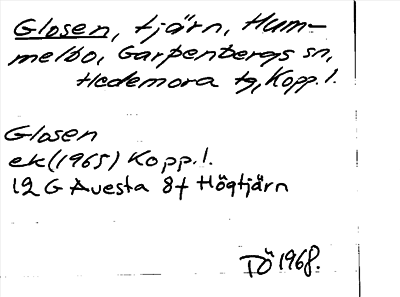 Glosen, tjärn, Hum-
melbo, Garpenbergs sn,
Hedemora tg, Kopp. l.
Glosen
ek (1965) Kopp. l.
12 G Avesta 8f Högtjärn
DÖ 1968.